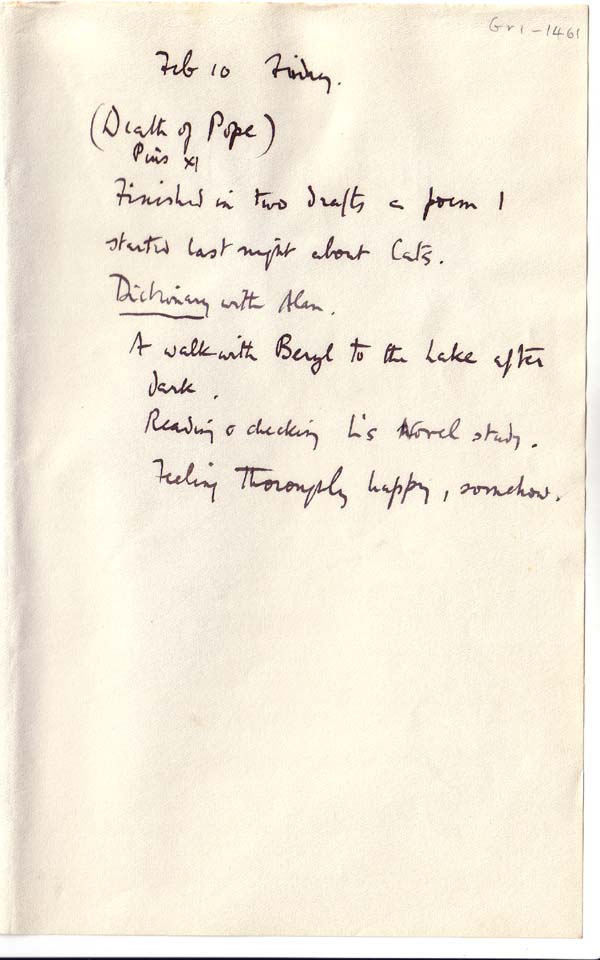 Gr1-1461
Feb 10 Friday.
(Death of Pope)
Pius XI
Finished in two drafts a poem I
started last night about Cats.
Dictionary with Alan.
A walk with Beryl to the Lake after
dark.
Reading & checking L's Novel study.
Feeling thoroughly happy, somehow.